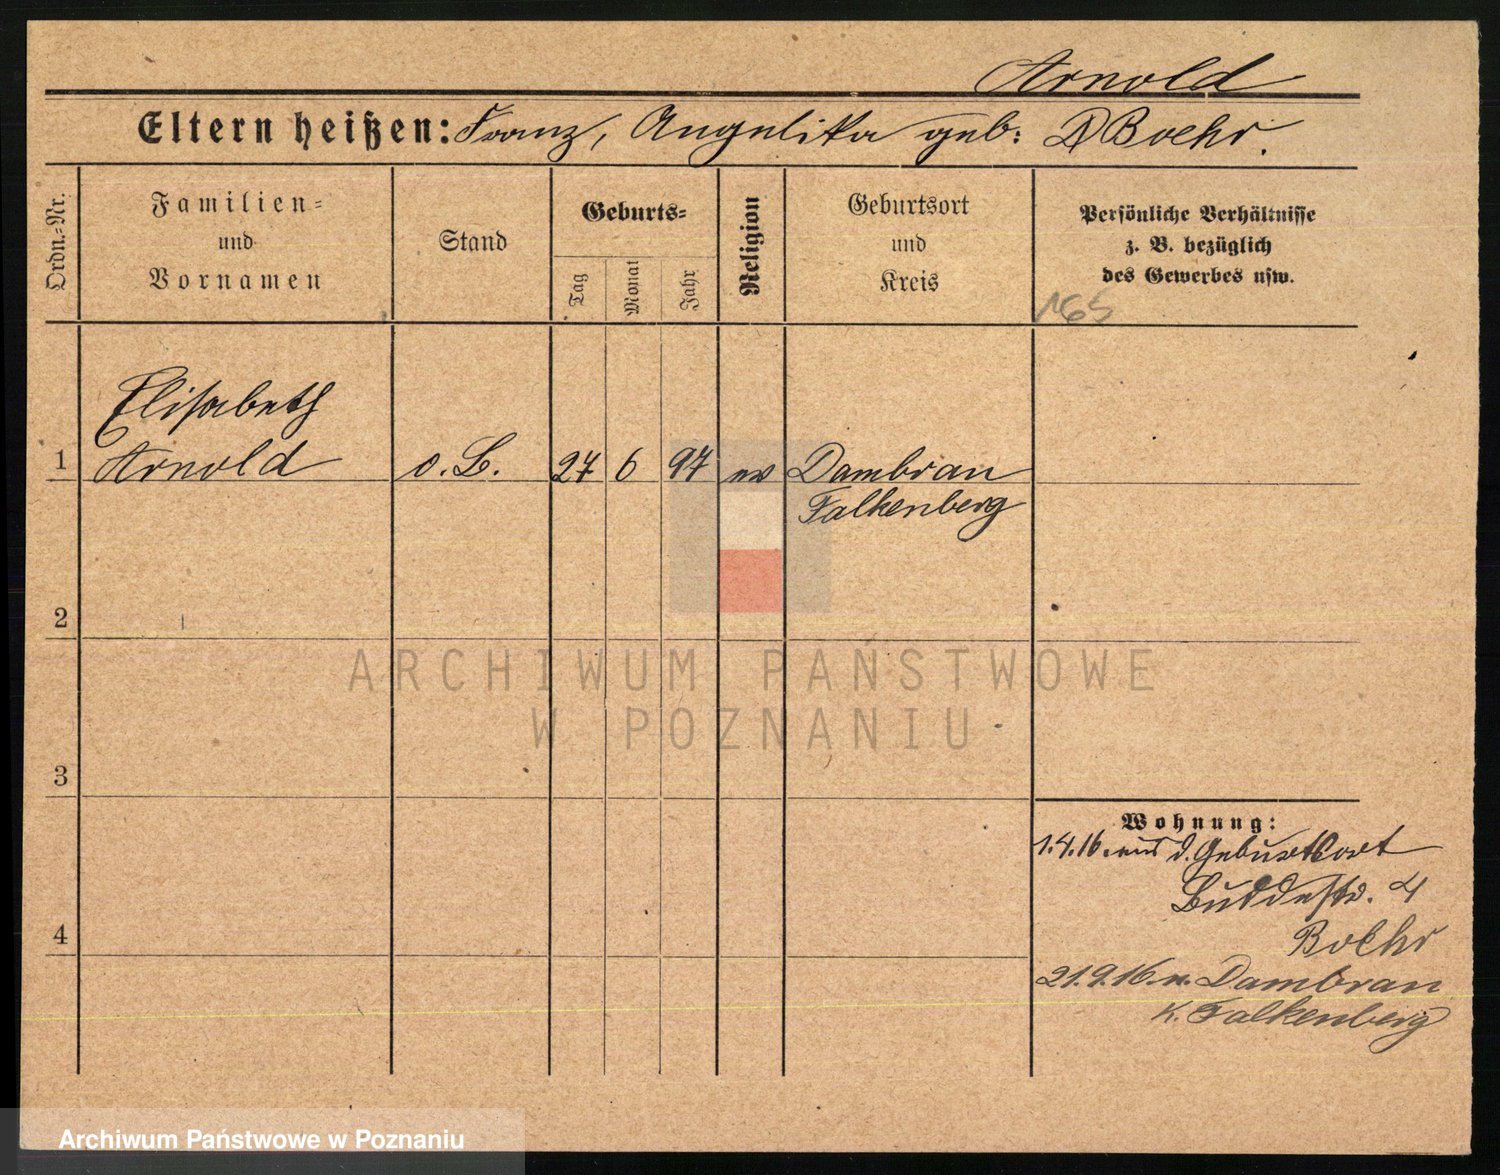 Arnold
Eltern heißen: Franz, Angelika geb: Boehr.
Ordn.-Nr.
Familien-
und
Vornamen
Stand
Geburts-
Tag
Monat
Jahr
Religion
Geburtsort
und
Kreis
Persönliche Verhältnisse
z. B. bezüglich
des Gewerbes usw.
165
Elisabeth
1 Arnold o. B. 27 6 97 ev Dambrau
Falkenberg
2
3
4
Wohnung:
1.4.16. aus d. Geburtsort
Buddestr. 4
Boehr
21.9.16 n. Dambrau
K. Falkenberg
ARCHIWUM PAŃSTWOWE
W POZNANIU
Archiwum Państwowe w Poznaniu